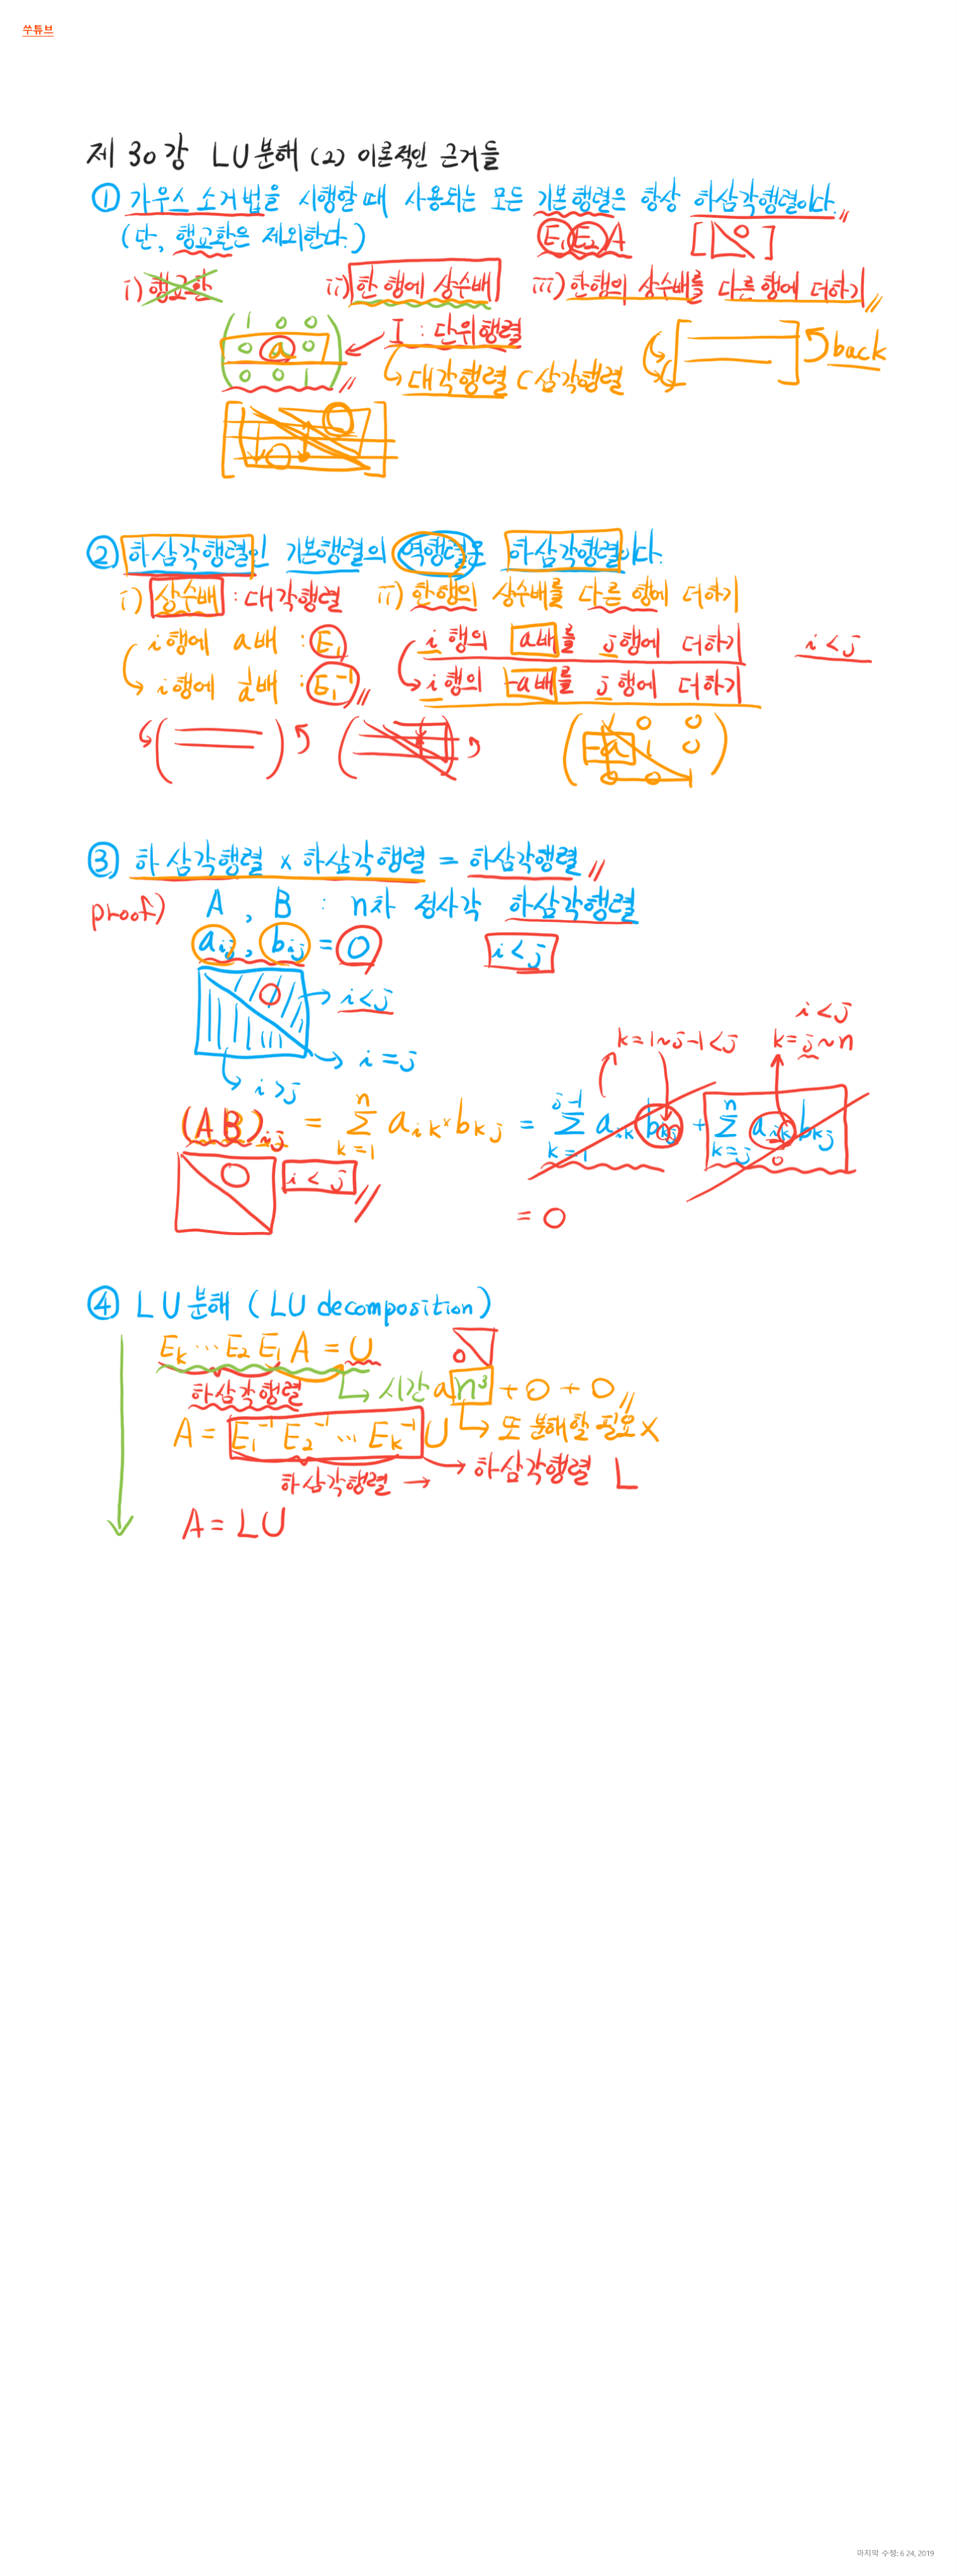 쑤튜브
제 30강 LU분해 (2) 이론적인 근거들
① 가우스 소거법을 시행할 때 사용되는 모든 기본행렬은 항상 하삼각행렬이다.
(단, 행교환은 제외한다.) E₁E₂A [0]
i) 행교환 ii) 한 행에 상수배 iii) 한행의 상수배를 다른 행에 더하기
1 0 0
0 a 0
0 0 1
I : 단위행렬
대각행렬 ⊂ 삼각행렬
back
② 하삼각행렬인 기본행렬의 역행렬은 하삼각행렬이다.
i) 상수배 : 대각행렬 ii) 한행의 상수배를 다른 행에 더하기
i행에 a배 : E₁ i행의 a배를 j행에 더하기 i<j
i행에 1/a배 : E₁⁻¹ i행의 -a배를 j행에 더하기
1 0 0
-a 1 0
0 0 1
③ 하삼각행렬 × 하삼각행렬 = 하삼각행렬
proof) A , B : n차 정사각 하삼각행렬
aij , bij = 0 i<j
0 → i<j
→ i=j
→ i>j
i<j
k=1~j-1<j k=j~n
(AB)ij = Σ(k=1, n) aik×bkj = Σ(k=1, j-1) aik bkj + Σ(k=j, n) aik bkj
0
0 i<j
= 0
④ LU분해 (LU decomposition)
Ek ⋯ E₂ E₁ A = U 0
하삼각행렬 → 시간 a n³ + 0 + 0
A = E₁⁻¹ E₂⁻¹ ⋯ Ek⁻¹ U → 또 분해할 필요 X
하삼각행렬 → 하삼각행렬 L
A = LU
마지막 수정: 6 24, 2019